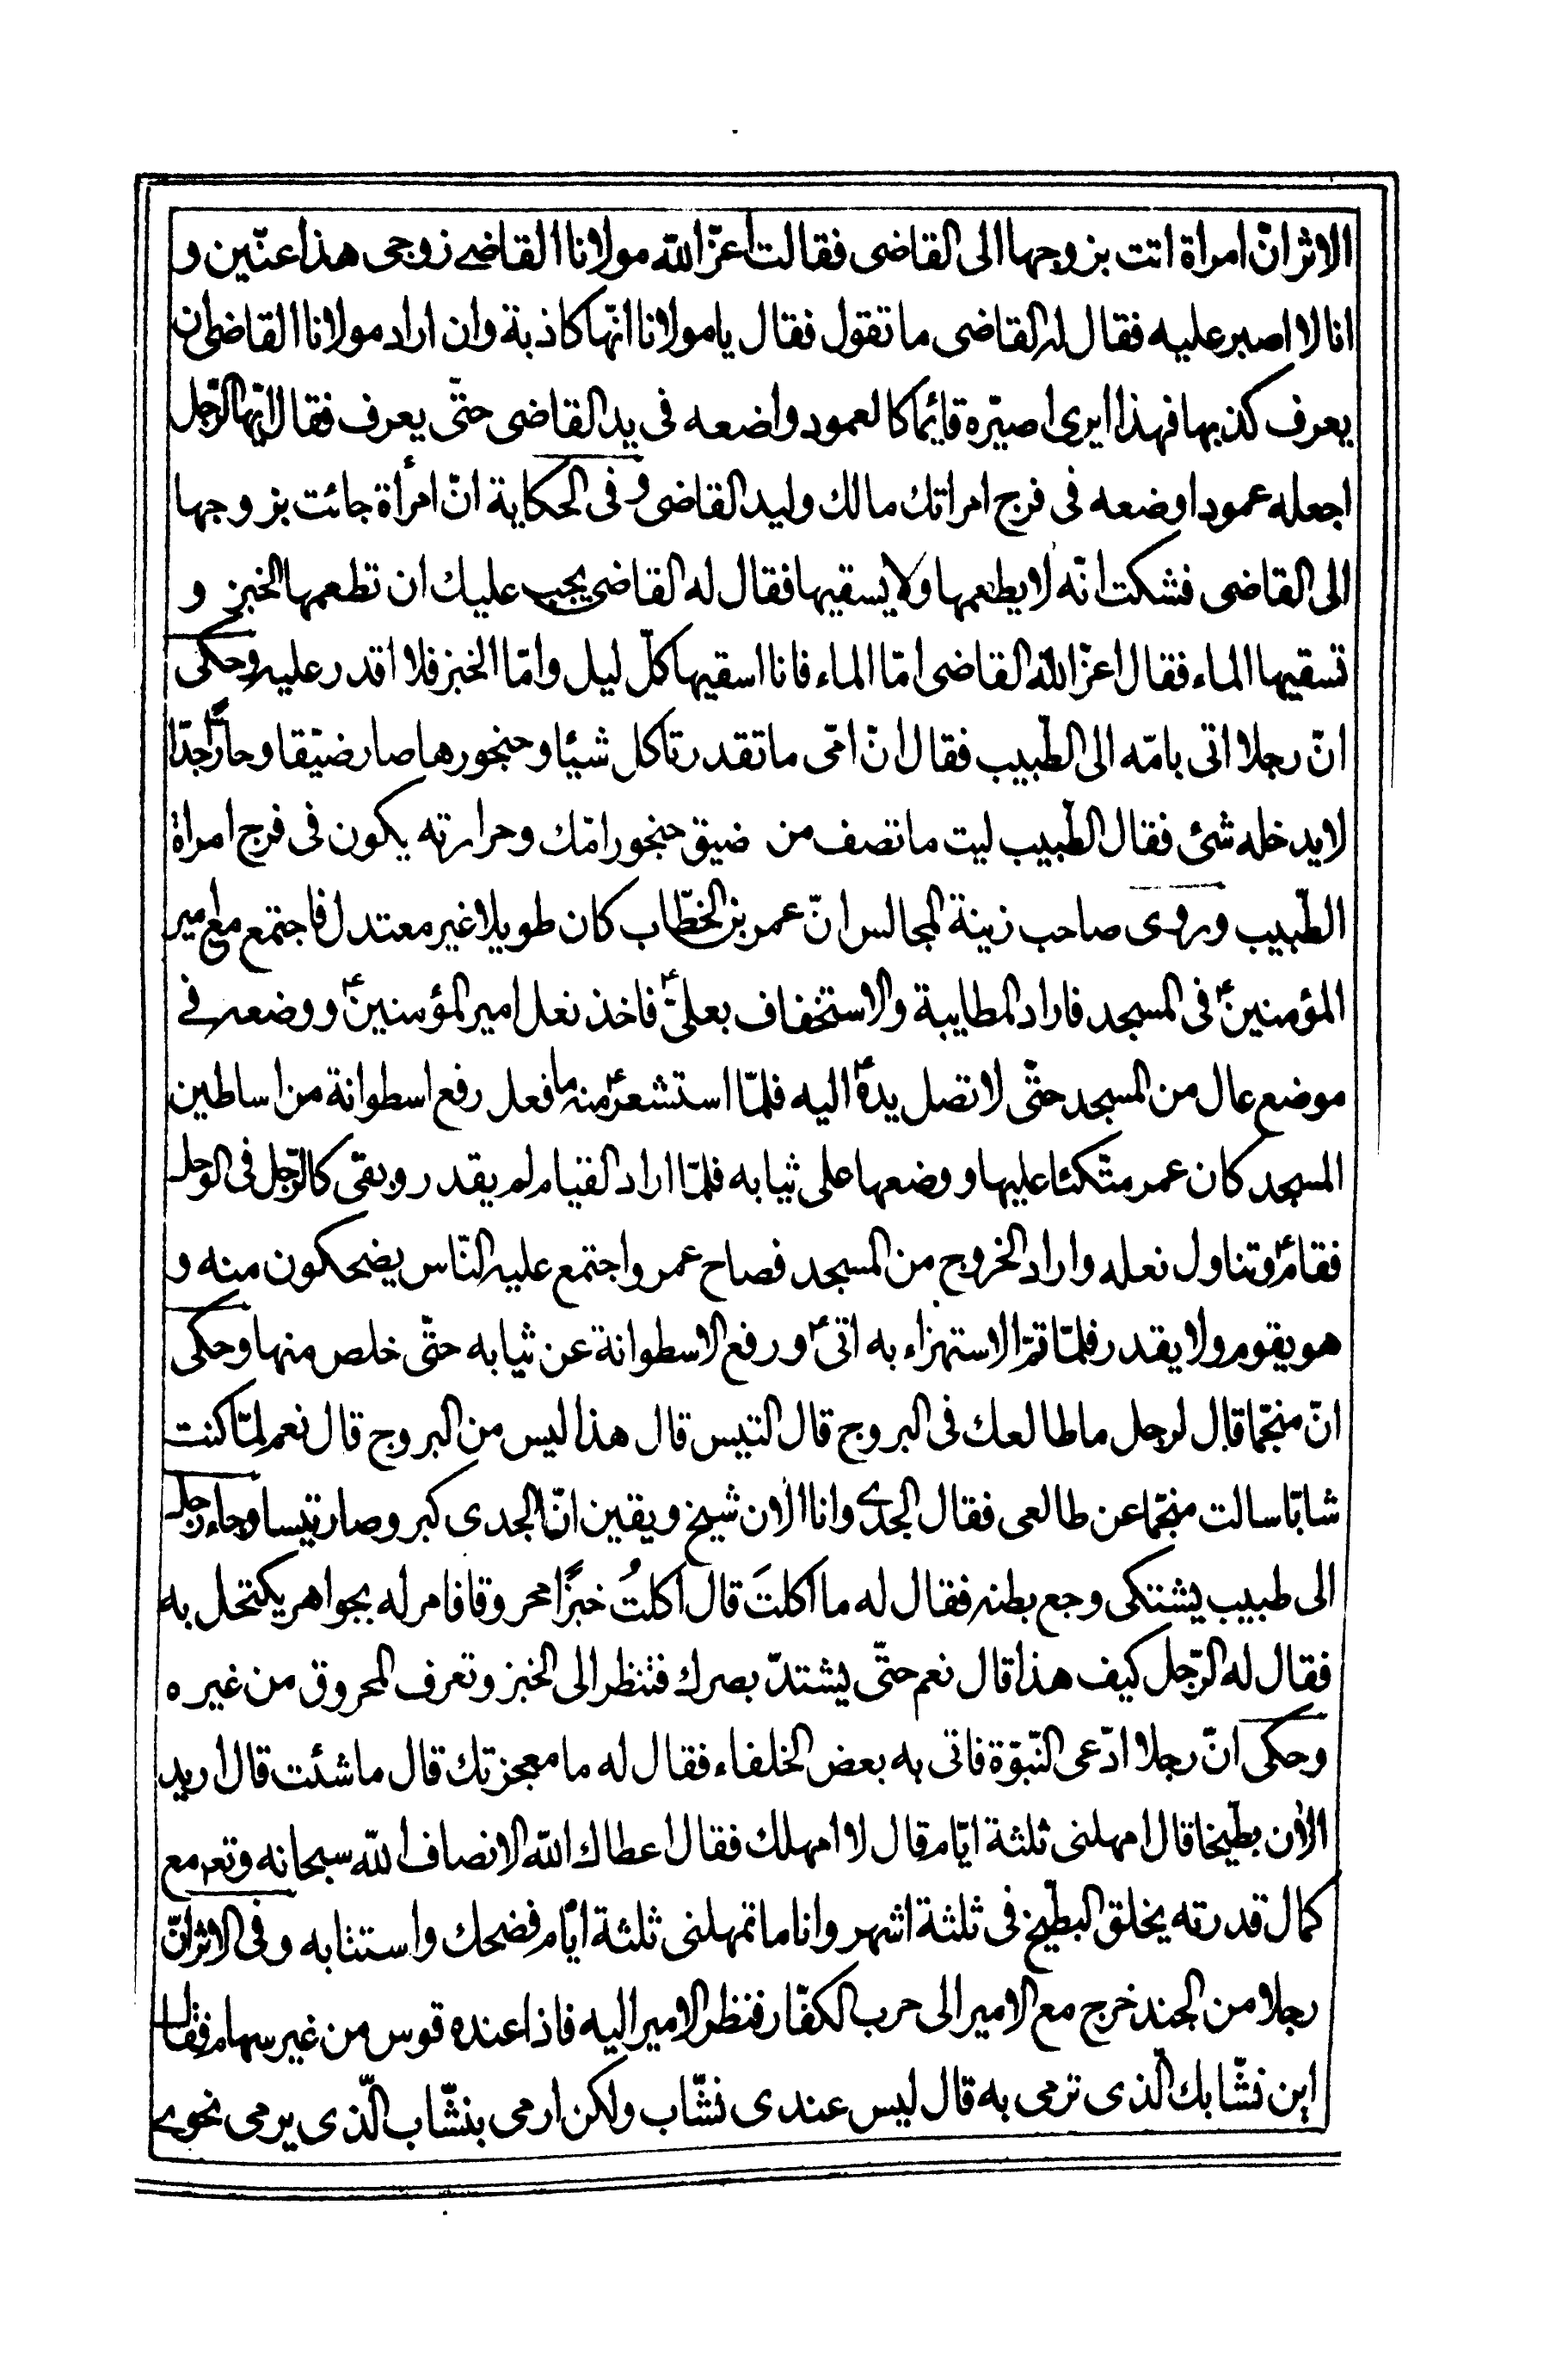 الاثر انّ امراة اتت بزوجها الى القاضى فقالت اعزّ الله مولانا القاضے زوجى هذا عنّين و
انا لا اصبر عليه فقال له القاضى ما تقول فقال يا مولانا انّها كاذبة وان اراد مولانا القاضى ان
يعرف كذبها فهذا ايرى اصيّره قائما كالعمود واضعه فى يد القاضى حتّى يعرف فقال ايّها الرّجل
اجعله عمودا وضعه فى فرج امراتك مالك وليد القاضى وفى الحكاية انّ امرأة جائت بزوجها
الى القاضى فشكت انّه لا يطعمها ولا يسقيها فقال له القاضى يجب عليك ان تطعمها الخبز و
تسقيها الماء فقال اعزّ الله القاضى امّا الماء فانا اسقيها كلّ ليل وامّا الخبز فلا اقدر عليه وحكى
انّ رجلا اتى بامّه الى الطّبيب فقال انّ امّى ما تقدر تاكل شيئا وحنجورها صار ضيّقا وحارّا جدّا
لا يدخله شئ فقال الطّبيب ليت ما تصف من ضيق حنجور امّك وحرارته يكون فى فرج امراة
الطّبيب وروى صاحب زينة المجالس انّ عمر بن الخطّاب كان طويلا غير معتدل فاجتمع مع امير
المؤمنينؑ فى المسجد فاراد المطايبة والاستخفاف بعلىّؑ فاخذ نعل امير المؤمنينؑ ووضعه فے
موضع عال من المسجد حتّى لا تصل يدهؑ اليه فلمّا استشعرؑ منه ما فعل رفع اسطوانة من اساطين
المسجد كان عمر متّكئا عليها ووضعها على ثيابه فلمّا اراد القيام لم يقدر وبقى كالرّجل فى الوحل
فقامؑ وتناول نعله واراد الخروج من المسجد فصاح عمر واجتمع عليه النّاس يضحكون منه و
هو يقوم ولا يقدر فلمّا تمّ الاستهزاء به اتىؑ ورفع الاسطوانة عن ثيابه حتّى خلص منها وحكى
انّ منجّما قال لرجل ما طالعك فى البروج قال التيس قال هذا ليس من البروج قال نعم لمّا كنت
شابّا سالت منجّما عن طالعى فقال الجدے وانا الان شيخ ويقين انّ الجدى كبر وصار تيسا وجاء رجل
الى طبيب يشتكى وجع بطنه فقال له ما اكلتَ قال اكلتُ خبزًا محروقا فامر له بجواهر يكتحل به
فقال له الرّجل كيف هذا قال نعم حتّى يشتدّ بصرك فتنظر الى الخبز وتعرف المحروق من غيره
وحكى انّ رجلا ادّعى النّبوّة فاتى به بعض الخلفاء فقال له ما معجزتك قال ما شئت قال اريد
الان بطّيخا قال امهلنى ثلثة ايّام قال لا امهلك فقال اعطاك الله الانصاف الله سبحانه وتعه مع
كمال قدرته يخلق البطّيخ فى ثلثة اشهر وانا ما تمهلنى ثلثة ايّام فضحك واستتابه وفى الاثر انّ
رجلا من الجند خرج مع الامير الى حرب الكفّار فنظر الامير اليه فاذا عنده قوس من غير سهام فقال
اين نشّابك الّذى ترمى به قال ليس عندى نشّاب ولكن ارمى بنشّاب الّذى يرمى نحوے